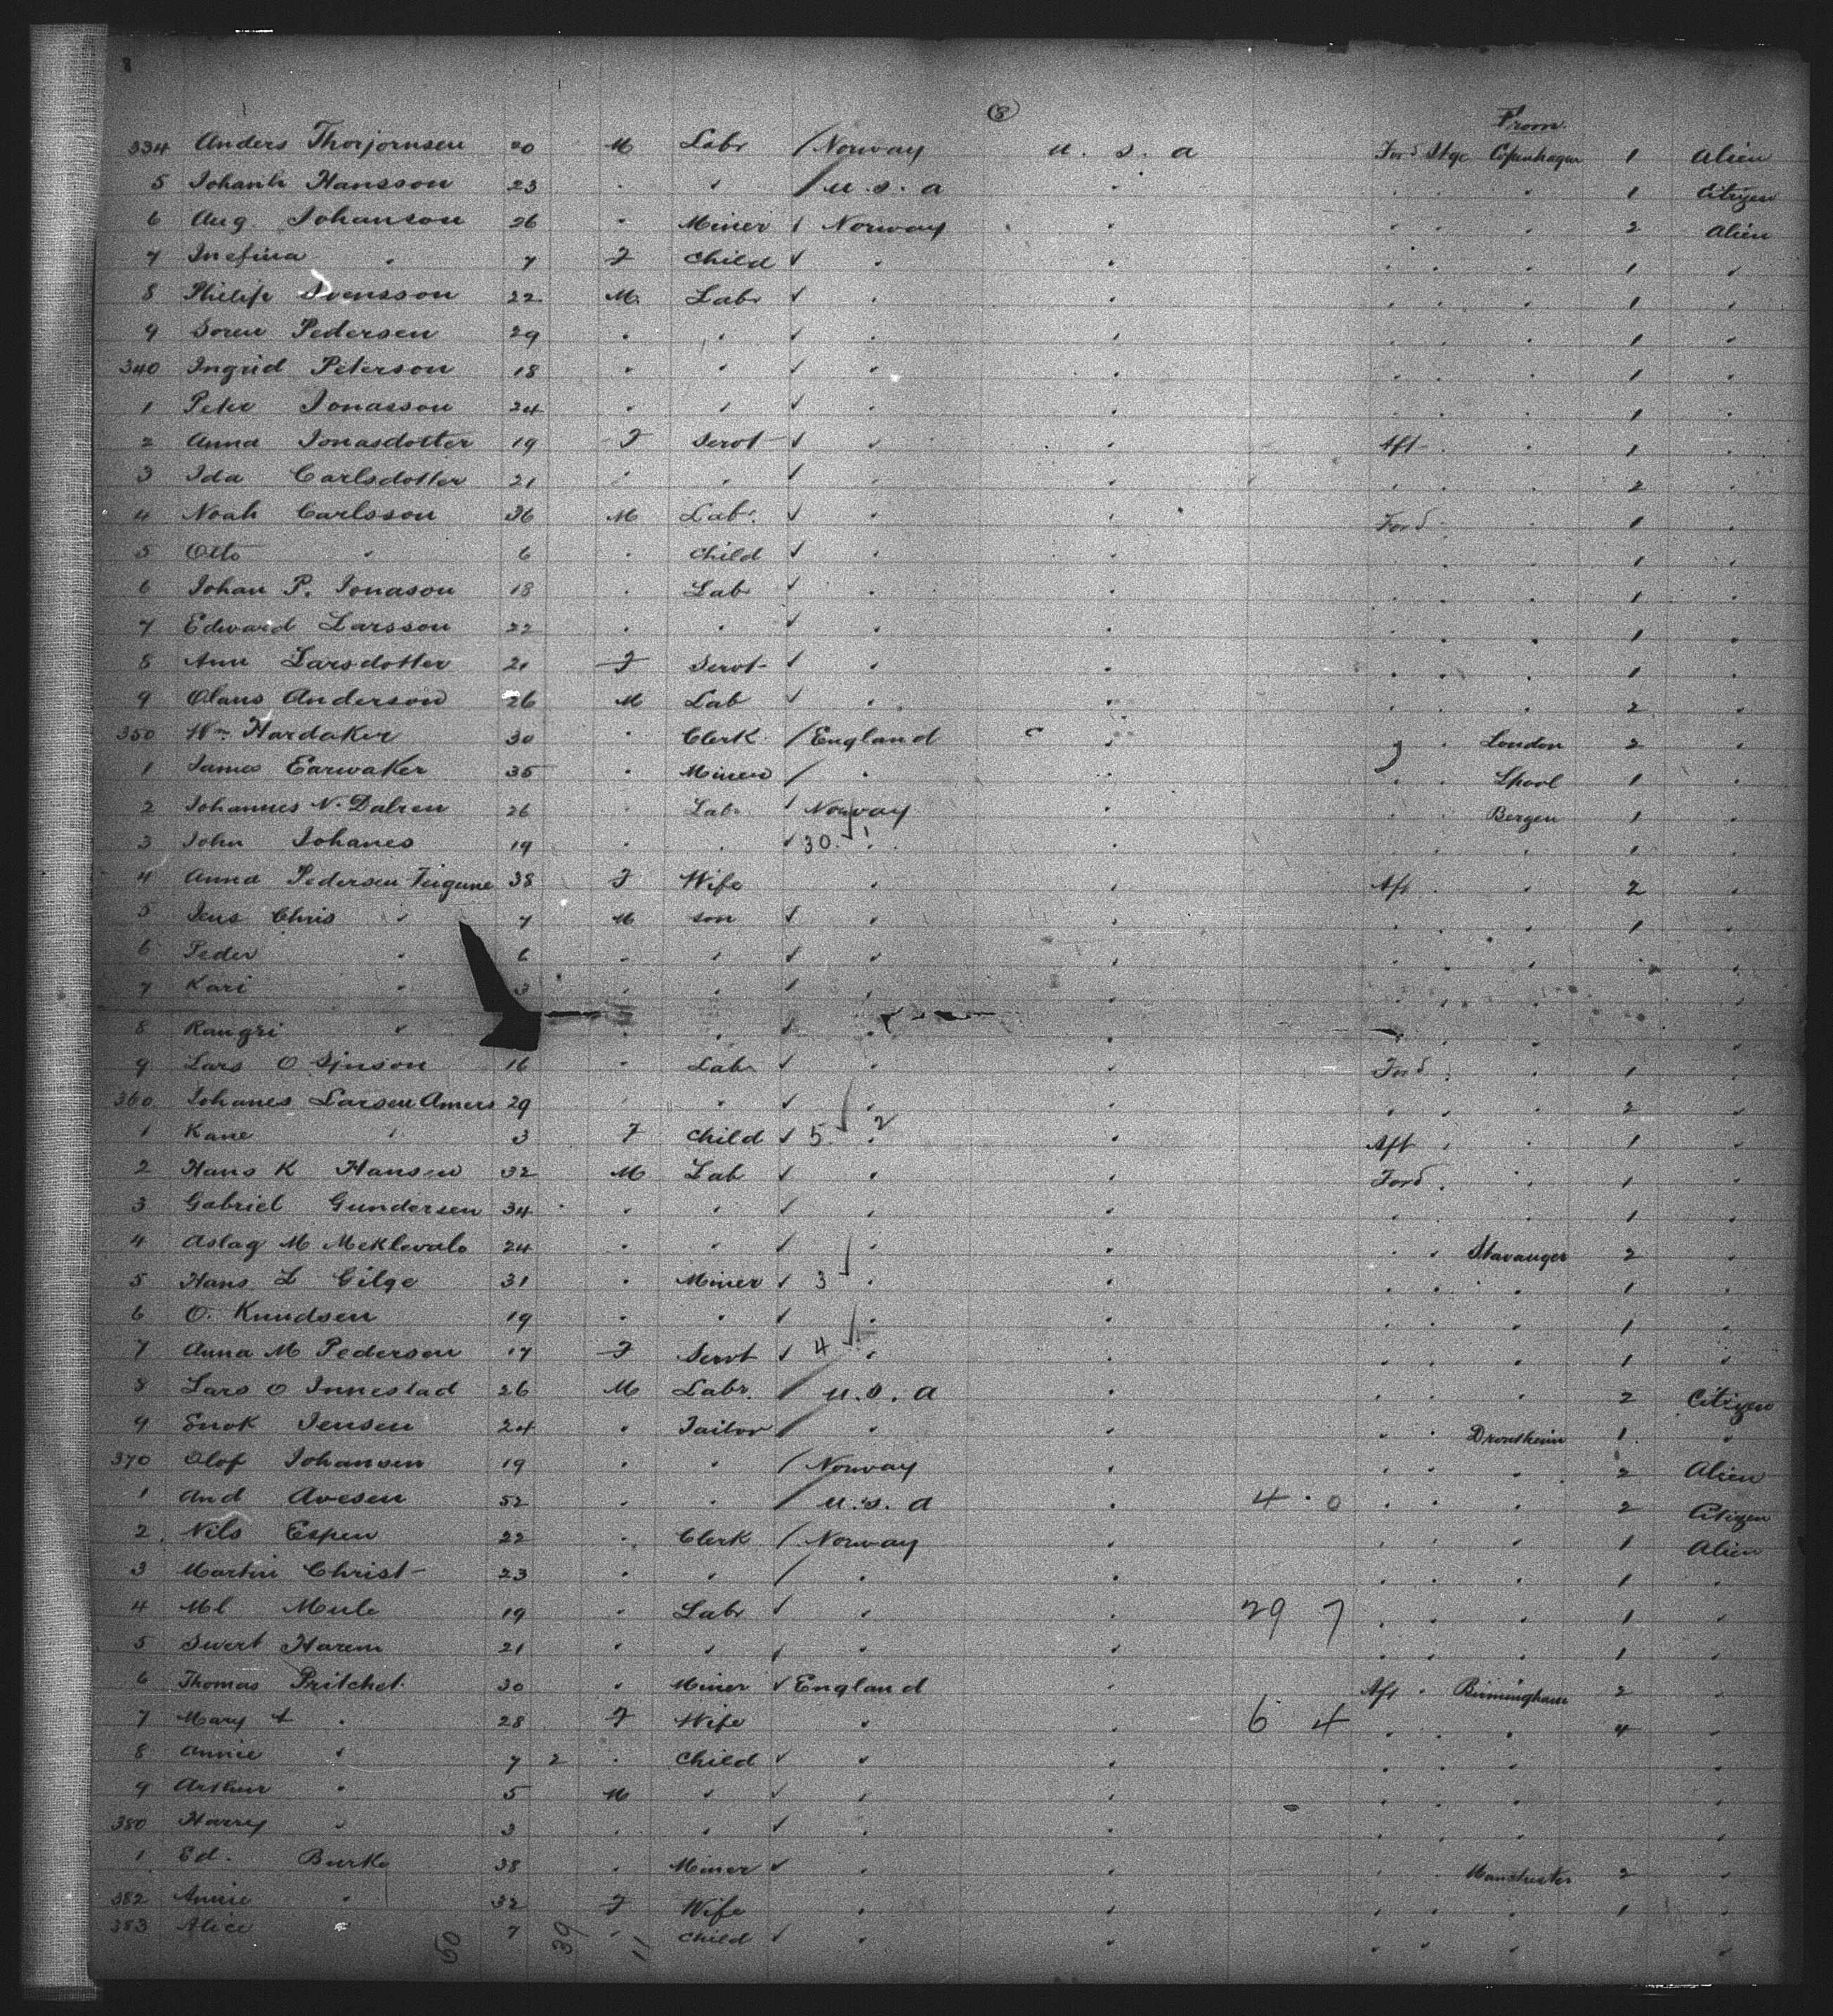 8
(8)
From
334 Anders Thorjornsen 20 M Labr / Norway U. S. A Ford Stge Copenhagen 1 Alien
5 Johanh Hansson 23 " " / U. S. A " " " " 1 Citizen
6 Aug. Johanson 26 " Miner / Norway " " " " 2 Alien
7 Josefina " 7 F Child ✓ " " " " " 1 "
8 Philip Svensson 22 M. Labr ✓ " " " " " 1 "
9 Soren Pedersen 29 " " ✓ " " " " " 1 "
340 Ingrid Peterson 18 " " ✓ " " " " " 1 "
1 Peter Jonasson 24 " " ✓ " " " " " 1 "
2 Anna Jonasdotter 19 F Servt ✓ " " Aft " " 1 "
3 Ida Carlsdotter 21 " " ✓ " " " " " 2 "
4 Noah Carlsson 36 M Labr. ✓ " " Ford " " 1 "
5 Otto " 6 " Child ✓ " " " " " 1 "
6 Johan P. Jonason 18 " Labr ✓ " " " " " 1 "
7 Edward Larsson 22 " " ✓ " " " " " 1 "
8 Ann Larsdotter 21 F Servt ✓ " " " " " 1 "
9 Olaus Anderson 26 M Lab ✓ " " " " " 2 "
350 Wm Hardaker 30 " Clerk / England c " " " London 2 "
1 James Earwaker 35 " Miner / " " " " Lpool 1 "
2 Johannes N. Dalren 26 " Labr ✓ Norway " " " Bergen 1 "
3 John Johanes 19 " " ✓ 30 " " " " " 1 "
4 Anna Pedersen 38 F Wife " " Aft " " 2 "
5 Jens Chris " 7 M son ✓ " " " " " 1 "
6 Peder " 6 " " ✓ " " " " " " "
7 Kari " 3 " " ✓ " " " " " "
8 Rangri " " " ✓ " " " " " "
9 Lars O 16 " Labr ✓ " " Ford " " 1 "
360 Johanes Larsen Amers 29 " " ✓ " " " " " 2 "
1 Kane " 3 F Child ✓ 5 " 2 " Aft " " 1 "
2 Hans K Hansen 32 M Lab ✓ " " Ford " " 1 "
3 Gabriel Gundersen 34 " " ✓ " " " " " 1 "
4 Aslag M Meklevalo 24 " " ✓ " " " " Stavanger 2 "
5 Hans L Gilge 31 " Miner ✓ 3 " " " " " 1 "
6 O. Knudsen 19 " " ✓ " " " " " 1 "
7 Anna M Pedersen 17 F Servt ✓ 4 " " " " " 1 "
8 Lars O Innestad 26 M Labr. / U. S. A " " " " 2 Citizen
9 Enok Jensen 24 " Tailor / " " " " Drontheim 1 "
370 Olof Johansen 19 " " / Norway " " " " 2 Alien
1 And Avesen 52 " " / U. S. A " 4 0 " " " 2 Citizen
2 Nils Espen 22 " Clerk / Norway " " " " 1 Alien
3 Martin Christ 23 " " / " " " " " 1 "
4 Ml Mule 19 " Labr ✓ " " 29 7 " " " 1 "
5 Sivert Harem 21 " " ✓ " " " " " 1 "
6 Thomas Pritchet 30 " Miner ✓ England " Aft " Birmingham 2 "
7 Mary A " 28 F Wife " " 6 4 " " " 4 "
8 Annie " 7 2 " Child ✓ " " " " " "
9 Arthur " 5 M " ✓ " " " " " "
380 Harry " 3 " " ✓ " " " " " "
1 Ed. Burke 38 " Miner ✓ " " " " Manchester 2 "
382 Annie " 32 F Wife " " " " " 1 "
383 Alice " 7 " Child ✓ " " " " " "
50 39 11